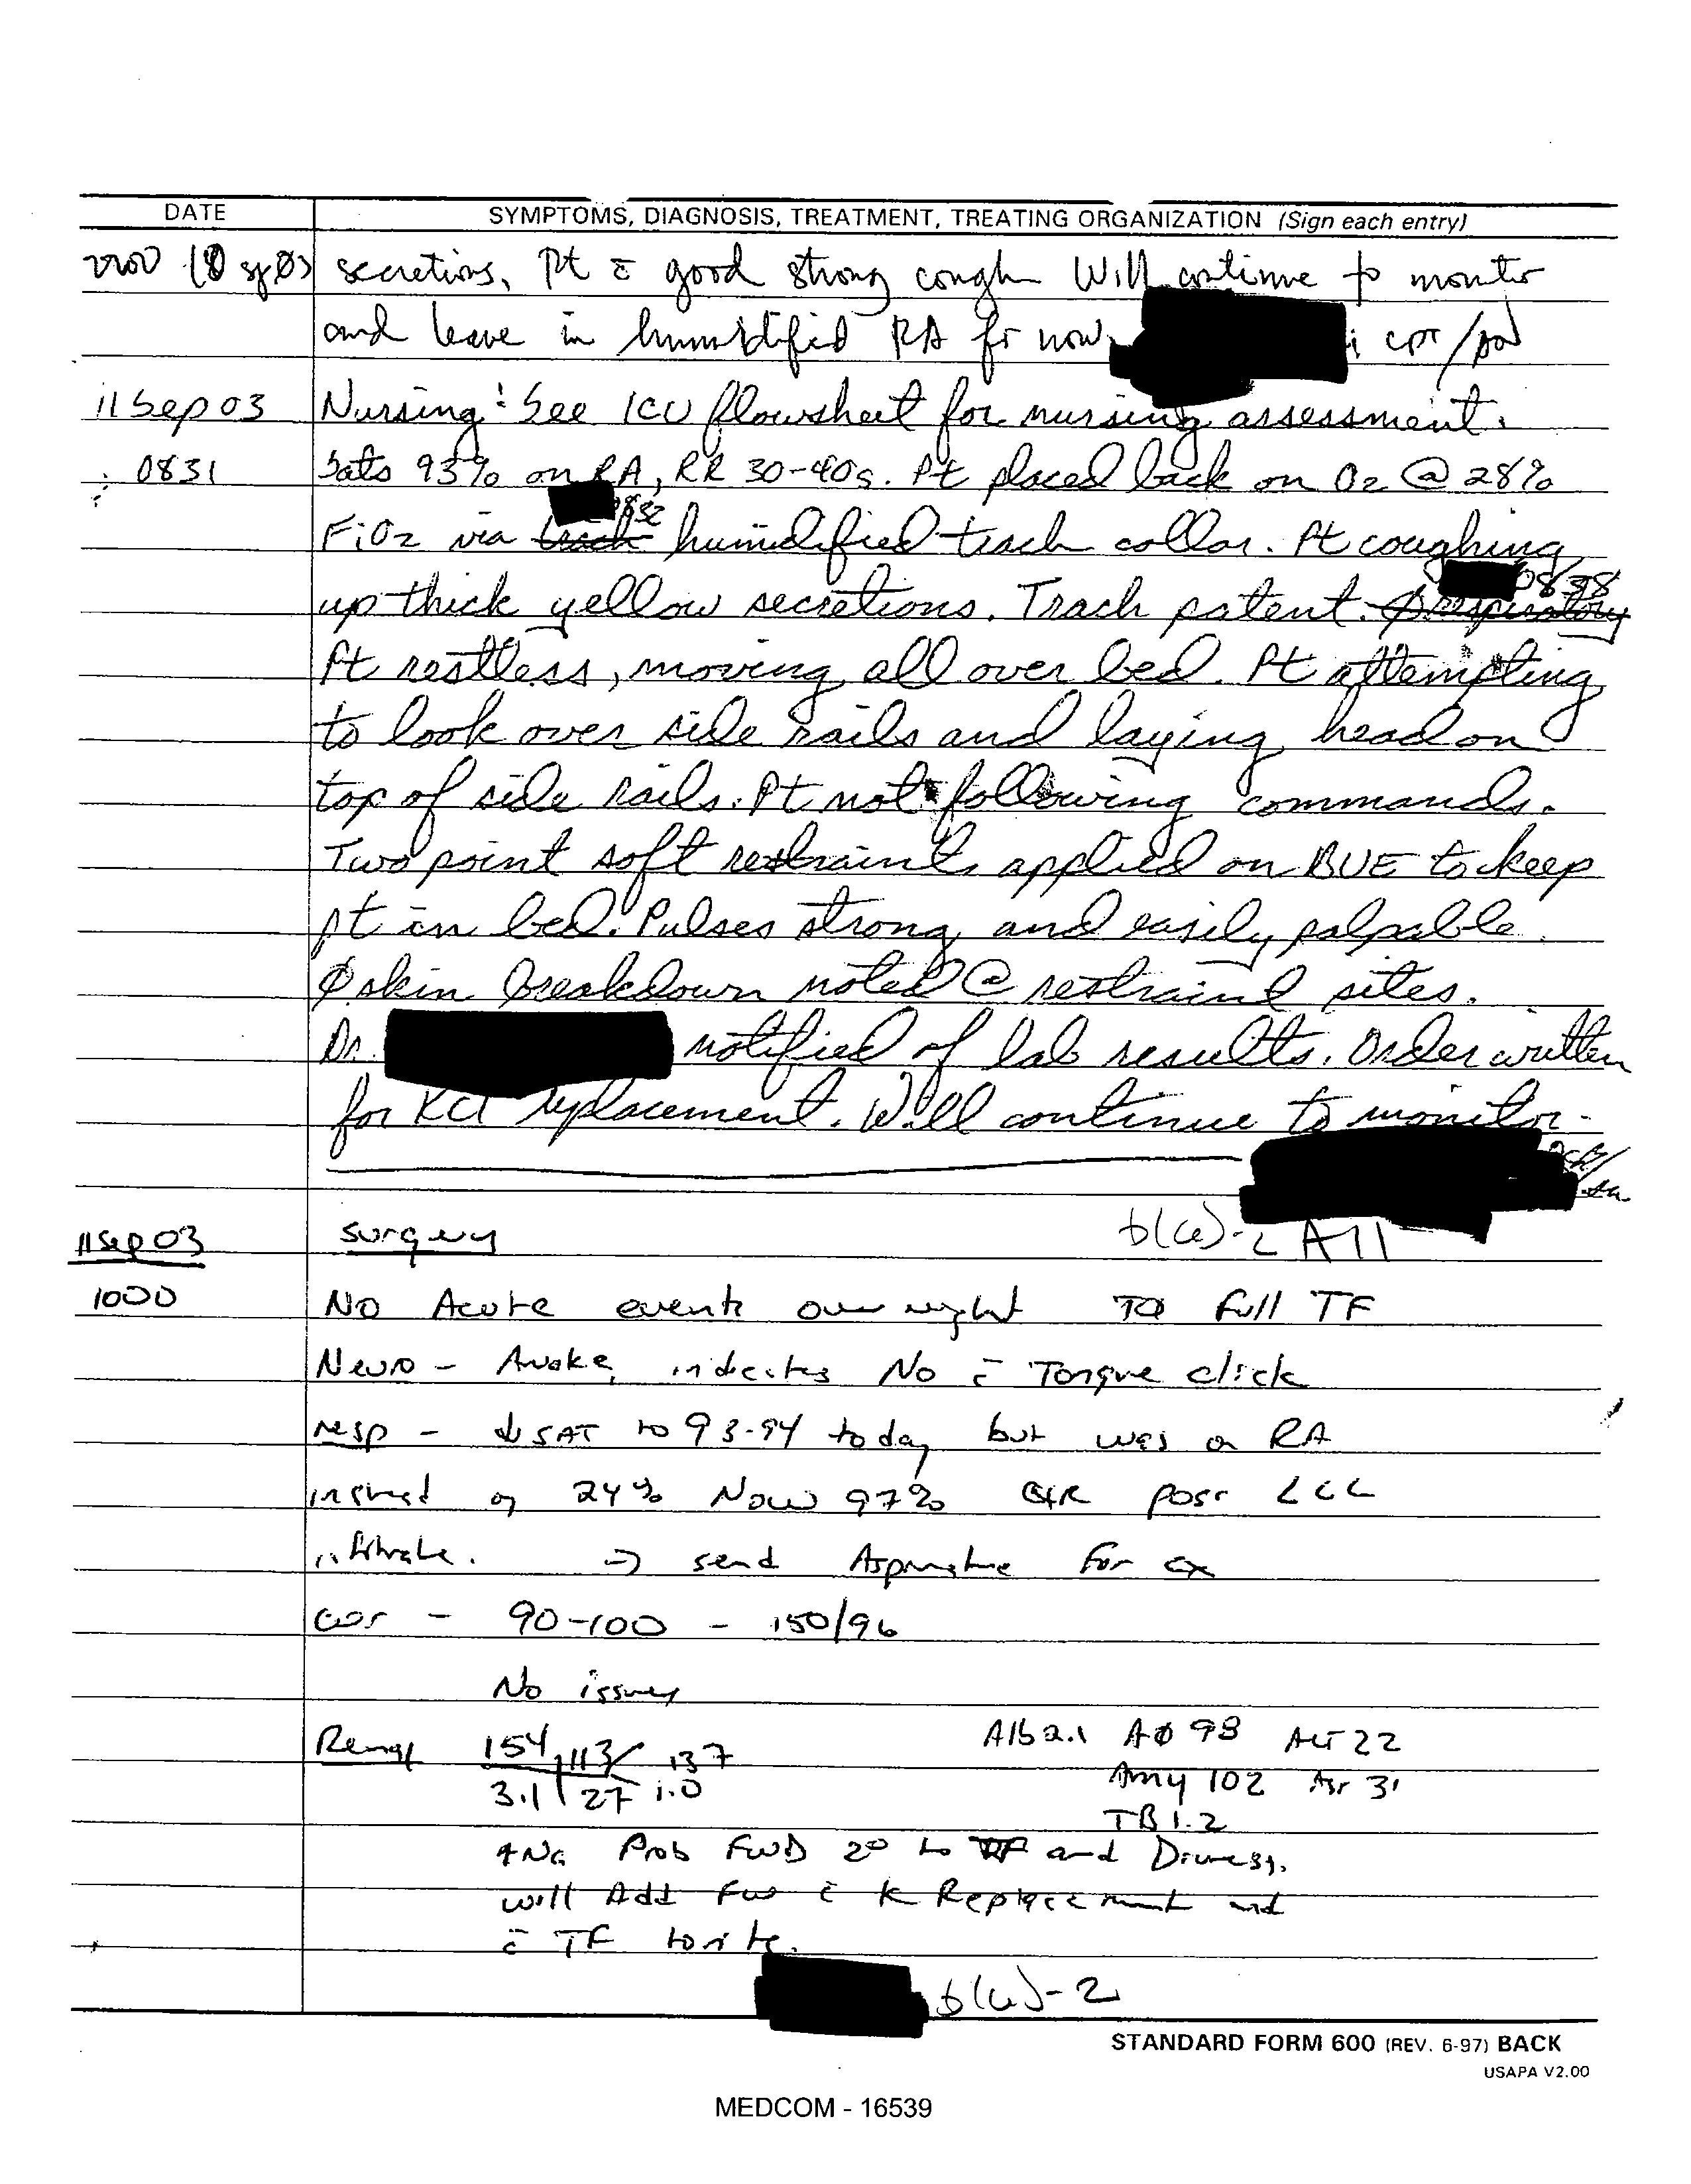 DATE SYMPTOMS, DIAGNOSIS, TREATMENT, TREATING ORGANIZATION (Sign each entry)
secretions, Pt c̄ good strong cough Will continue to monitor
and leave in humidified RA for now. CPT/
11 Sep 03 Nursing: See ICU flowsheet for nursing assessment.
0831 Sats 93% on RA, RR 30-40s. Pt placed back on O2 @ 28%
FiO2 via trach humidified trach collar. Pt coughing
0838
up thick yellow secretions. Trach patent. Ø respiratory
Pt restless, moving all over bed. Pt attempting
to look over side rails and laying head on
top of side rails. Pt not following commands.
Two point soft restraints applied on BUE to keep
pt in bed. Pulses strong and easily palpable.
Ø skin breakdown noted @ restraint sites.
Dr. notified of lab results. Order written
for KCl replacement. Will continue to monitor.
b(6)-2 All
11 Sep 03 Surgery
1000 No Acute events overnight Full TF
Neuro - Awake, indicates No c̄ Tongue click
resp - ↓ SAT to 93-94 today but was on RA
24% Now 97% CXR poss LLL
infiltrate. → send Aspirate for cx
cor - 90-100 - 150/96
No issues
Renal 154 113 137 Alb 2.1 AØ 93 ALT 22
3.1 27 1.0 Amy 102 AST 31
TB 1.2
↑Na Prob FWD 2° to TF and Diuresis.
will Add FW c̄ K Replacement and
c̄ TF
b(6)-2
STANDARD FORM 600 (REV. 6-97) BACK
USAPA V2.00
MEDCOM - 16539